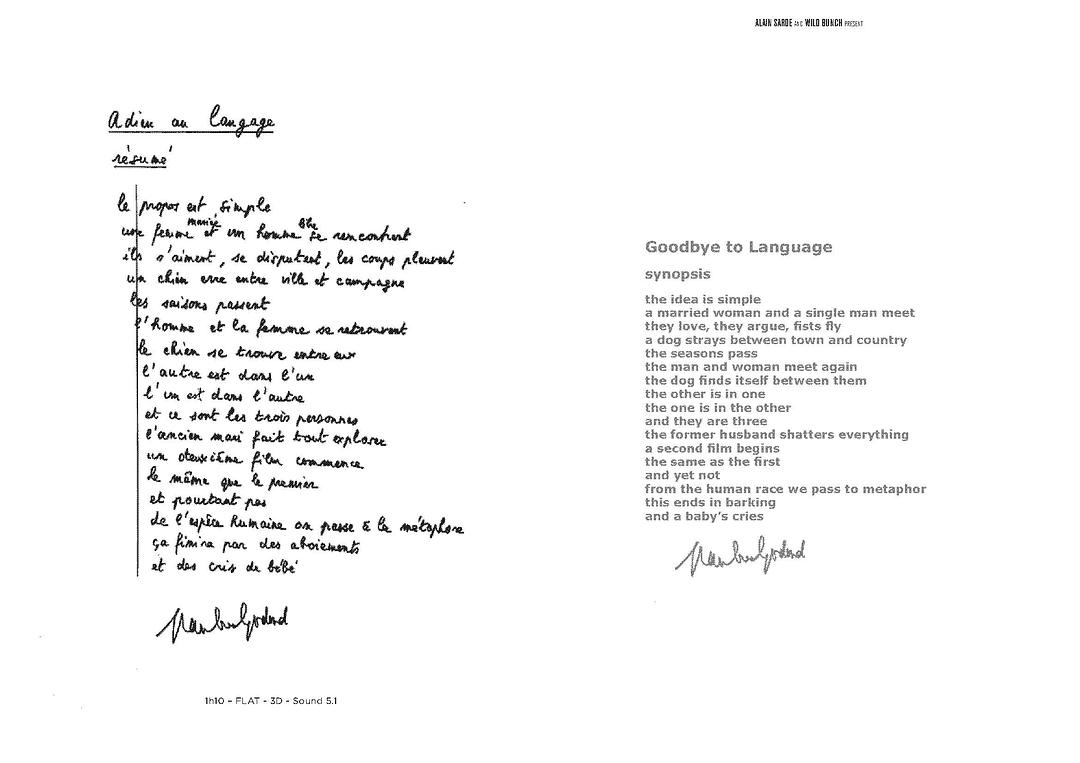 ALAIN SARDE AND WILD BUNCH PRESENT
Adieu au langage
résumé
le propos est simple
une femme mariée et un homme libre se rencontrent
ils s'aiment, se disputent, les coups pleuvent
un chien erre entre ville et campagne
les saisons passent
l'homme et la femme se retrouvent
le chien se trouve entre eux
l'autre est dans l'un
l'un est dans l'autre
et ce sont les trois personnes
l'ancien mari fait tout exploser
un deuxième film commence
le même que le premier
et pourtant pas
de l'espèce humaine on passe à la métaphore
ça finira par des aboiements
et des cris de bébé
Jean-Luc Godard
1h10 - FLAT - 3D - Sound 5.1
Goodbye to Language
synopsis
the idea is simple
a married woman and a single man meet
they love, they argue, fists fly
a dog strays between town and country
the seasons pass
the man and woman meet again
the dog finds itself between them
the other is in one
the one is in the other
and they are three
the former husband shatters everything
a second film begins
the same as the first
and yet not
from the human race we pass to metaphor
this ends in barking
and a baby's cries
Jean-Luc Godard